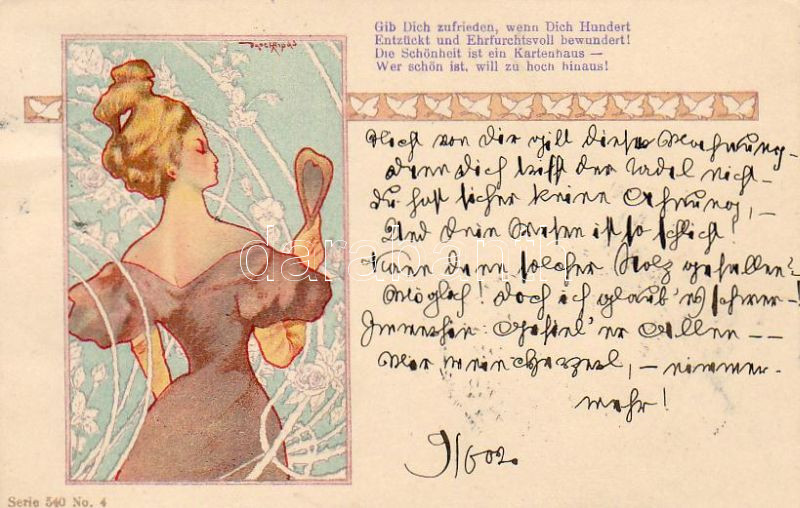 Gib Dich zufrieden, wenn Dich Hundert
Entzückt und Ehrfurchtsvoll bewundert!
Die Schönheit ist ein Kartenhaus —
Wer schön ist, will zu hoch hinaus!
Basch Árpád
Nicht von Dir gilt dieser Mahnung –
denn Dich trifft der Tadel nicht –
Du hast sicher keine Ahnung, –
Und Dein Wesen ist so schlicht!
Kann denn solcher Stolz gefallen? –
Möglich! Doch ich glaub' es schwer –!
Immerhin: Gefiel' er Allen – –
Mir mein Herzerl, – nimmer-
mehr!
9/6 02.
darabanth
Serie 540 No. 4